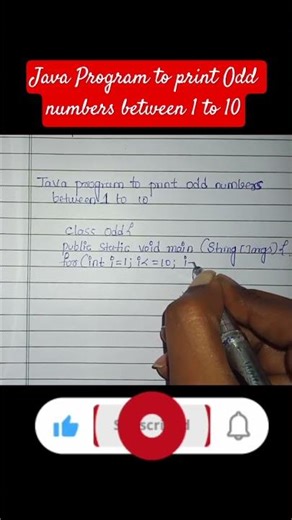 Java Program to print Odd
numbers between 1 to 10
Java program to print odd numbers
between 1 to 10
class odd{
public static void main (String []args){
for(int i=1; i<=10; i